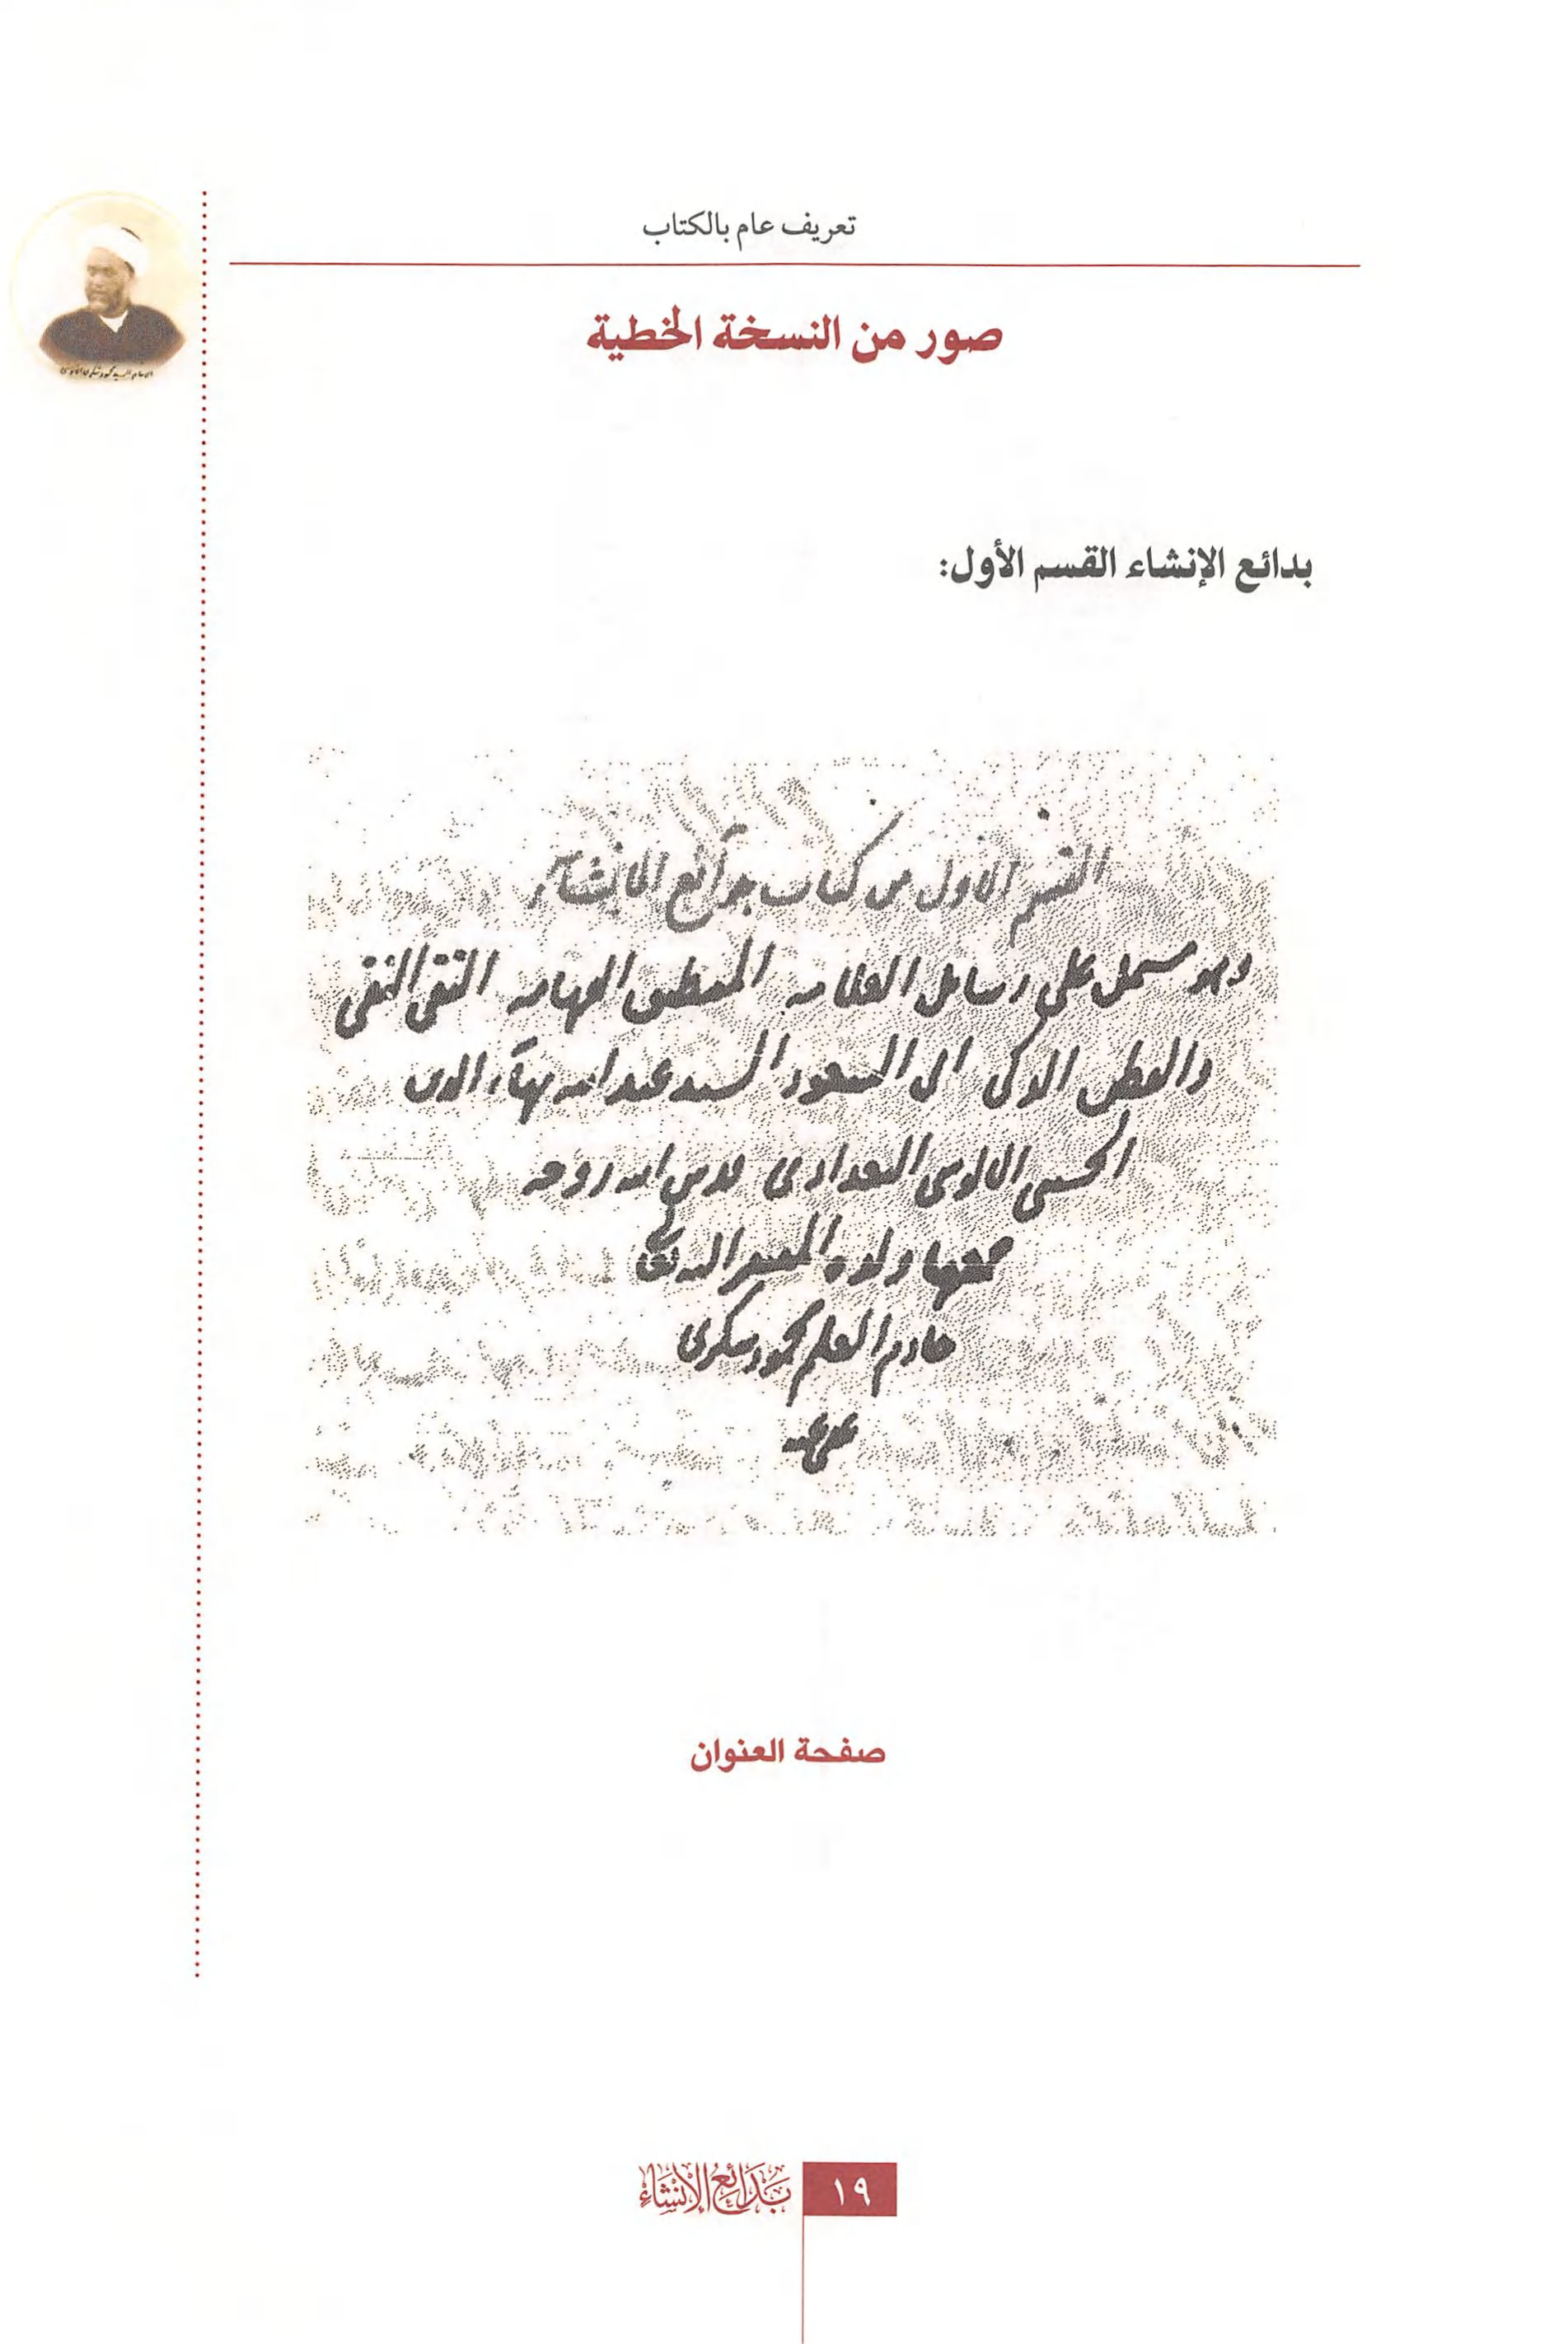 تعريف عام بالكتاب
صور من النسخة الخطية
بدائع الإنشاء القسم الأول:
القسم الاول من كتاب بدآئع الانشآء
وهو مشتمل على رسايل العلامه المنطيق الفهامه التقي النقي
والفطن الذكي ابي السعود السيد عبد الله بهآء الدين
الحسيني الالوسي البغدادي قدس الله روحه
جمعها ولده الفقير اليه تعالى
خادم العلم محمود شكرى
عفى عنه
صفحة العنوان
بَدَائِعُ الإِنْشَاءِ
١٩